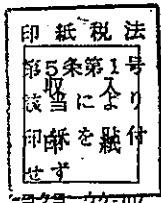 印紙税法
第5条第1号
該当により
印紙を貼付
せず
収入
印紙